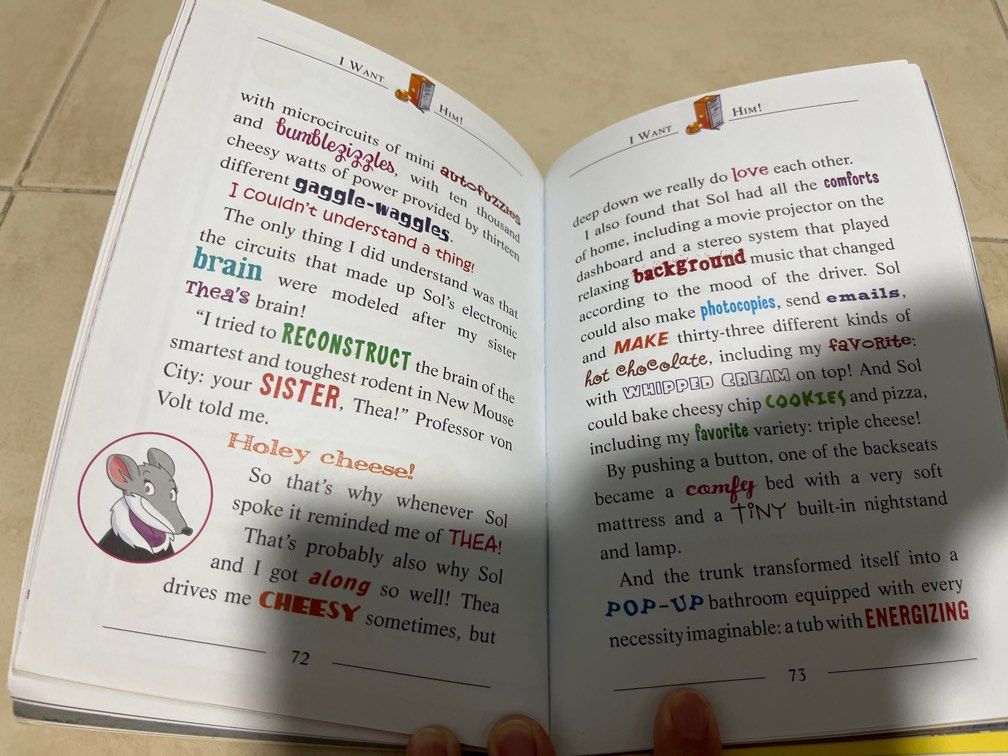 I WANT HIM!
with microcircuits of mini autofuzzies
and bumblezizzles, with ten thousand
cheesy watts of power provided by thirteen
different gaggle-waggles.
I couldn't understand a thing!
The only thing I did understand was that
the circuits that made up Sol's electronic
brain were modeled after my sister
Thea's brain!
"I tried to RECONSTRUCT the brain of the
smartest and toughest rodent in New Mouse
City: your SISTER, Thea!" Professor von
Volt told me.
Holey cheese!
So that's why whenever Sol
spoke it reminded me of THEA!
That's probably also why Sol
and I got along so well! Thea
drives me CHEESY sometimes, but
72
I WANT HIM!
deep down we really do love each other.
I also found that Sol had all the comforts
of home, including a movie projector on the
dashboard and a stereo system that played
relaxing background music that changed
according to the mood of the driver. Sol
could also make photocopies, send emails,
and MAKE thirty-three different kinds of
hot chocolate, including my favorite:
with WHIPPED CREAM on top! And Sol
could bake cheesy chip COOKIES and pizza,
including my favorite variety: triple cheese!
By pushing a button, one of the backseats
became a comfy bed with a very soft
mattress and a TINY built-in nightstand
and lamp.
And the trunk transformed itself into a
POP-UP bathroom equipped with every
necessity imaginable: a tub with ENERGIZING
73